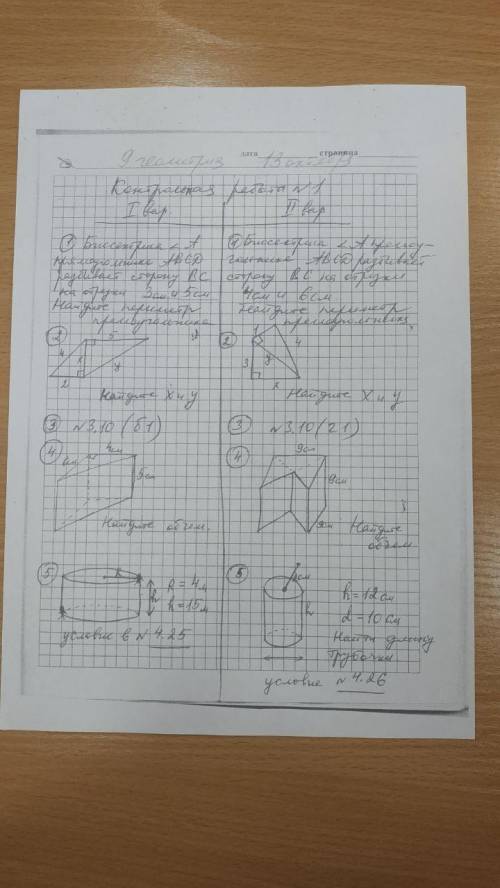 дата страница
9 геометрия 13 октября
Контрольная работа №1
I вар.
① Биссектриса ∠A
прямоугольника ABCD
разбивает сторону BC
на отрезки 3см 4,5см
Найдите периметр
прямоугольника
②
5
4 x y
2
Найдите x и y
③ №3.10 (б1)
④
4см
6см
9см
Найдите объём.
⑤
R
h
R = 4м
h = 15м
условие в № 4.25
II вар
① Биссектриса ∠A прямоу-
гольника ABCD разбивает
сторону BC на отрезки
4см и 6см
Найдите периметр
прямоугольника
②
1
4
3 y
x
Найдите x и y
③ №3.10 (г1)
④
9см
9см
9см
Найдите
объём
h
h = 12см
d = 10см
Найти длину
трубочки
условие № 4.26